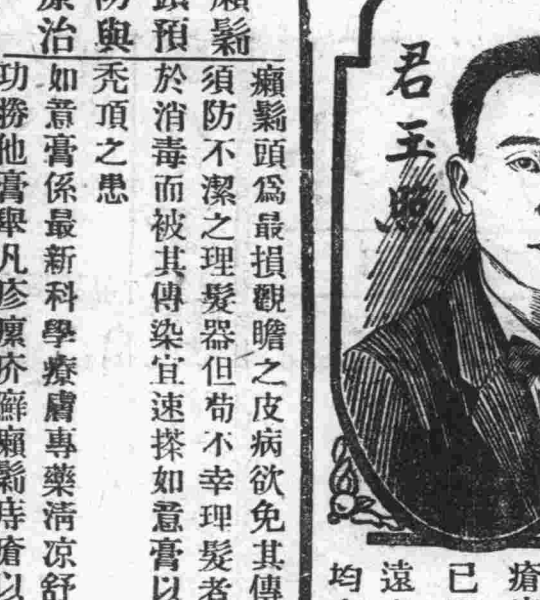 君玉照
瘡
已
遠
均
癩鬎
頭預
防與
療治
癩鬎頭爲最損觀瞻之皮病欲免其傳
須防不潔之理髮器但苟不幸理髮者
於消毒而被其傳染宜速搽如意膏以
禿頂之患
如意膏係最新科學療膚專藥淸凉舒
功勝他膏舉凡疹瘰疥癬癩鬎痔瘡以